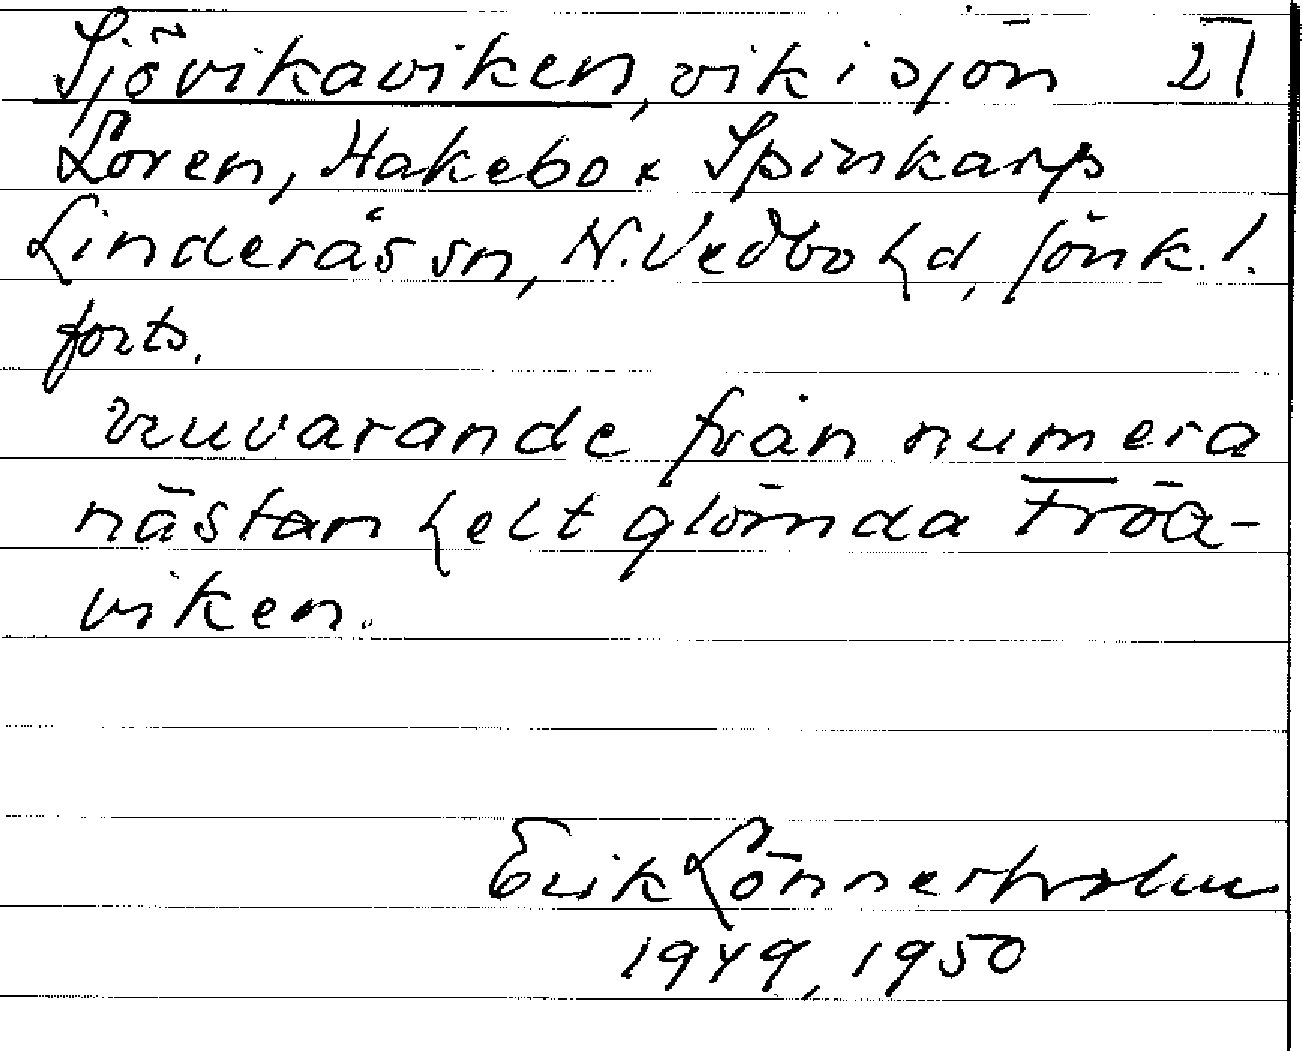 Sjövikaviken, vik i sjön 2)
Lören, Hakebo x Spinkarp
Linderås sn, N. Vedbo hd, Jönk. l.
forts.
vuvarande från numera
nästan helt glömda Fröa-
viken.
Erik Lönnerholm
1949, 1950